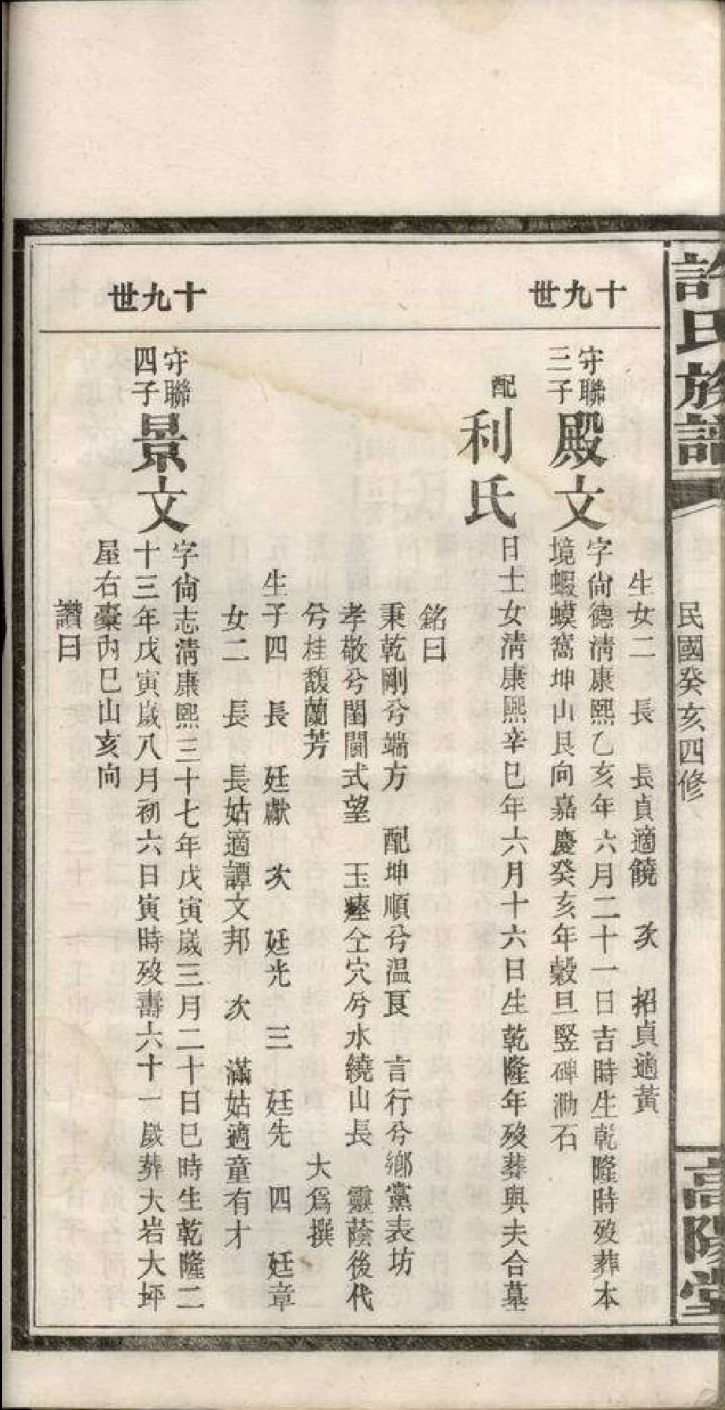 許氏族譜
民國癸亥四修
高陽堂
十九世
生女二 長 長貞適饒 次 招貞適黃
守聯
三子
殿文
字尙德淸康熙乙亥年六月二十一日吉時生乾隆時歿葬本
境蝦蟆窩坤山艮向嘉慶癸亥年穀旦竪碑泐石
配
利氏
日士女淸康熙辛巳年六月十六日生乾隆年歿葬與夫合墓
銘曰
秉乾剛兮端方 配坤順兮温良 言行兮鄉黨表坊
孝敬兮閨闈式望 玉瘞仝穴兮水繞山長 靈蔭後代
兮桂馥蘭芳 大爲撰
生子四 長 廷獻 次 廷光 三 廷先 四 廷章
女二 長 長姑適譚文邦 次 滿姑適童有才
十九世
守聯
四子
景文
字尙志淸康熙三十七年戊寅歲三月二十日巳時生乾隆二
十三年戊寅歲八月初六日寅時歿壽六十一歲葬大岩大坪
屋右𡎺內巳山亥向
讚曰